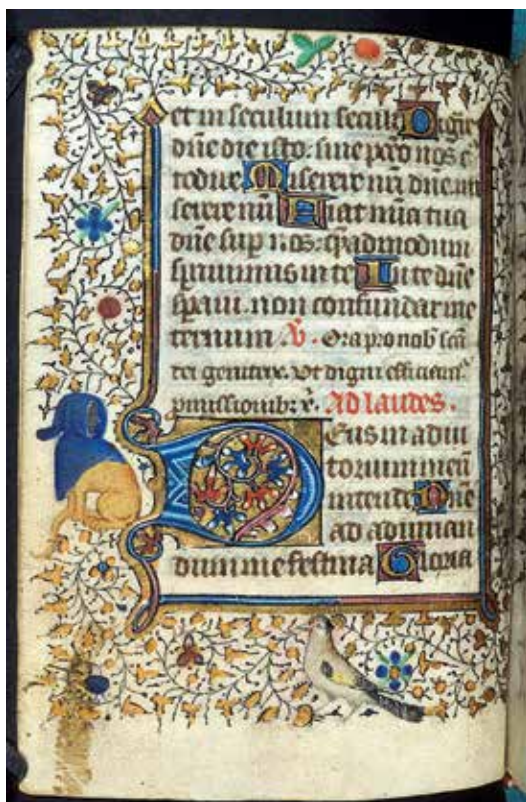 et in seculum seculi Digne
dñe die isto: sine pcco nos c
todire Miserere nrī dñe mi
serere nrī Fiat mīa tua
dñe sup nos: qẽadmodum
sperauimus in te In te dñe
speraui. non confundar in e
ternum V. Ora pro nob scā
dei genitrix. Vt digni efficiam
pmissionib: x. Ad laudes.
Deus in adiu
torium meū
intende Dñe
ad adiuuan
dum me festina Gloria